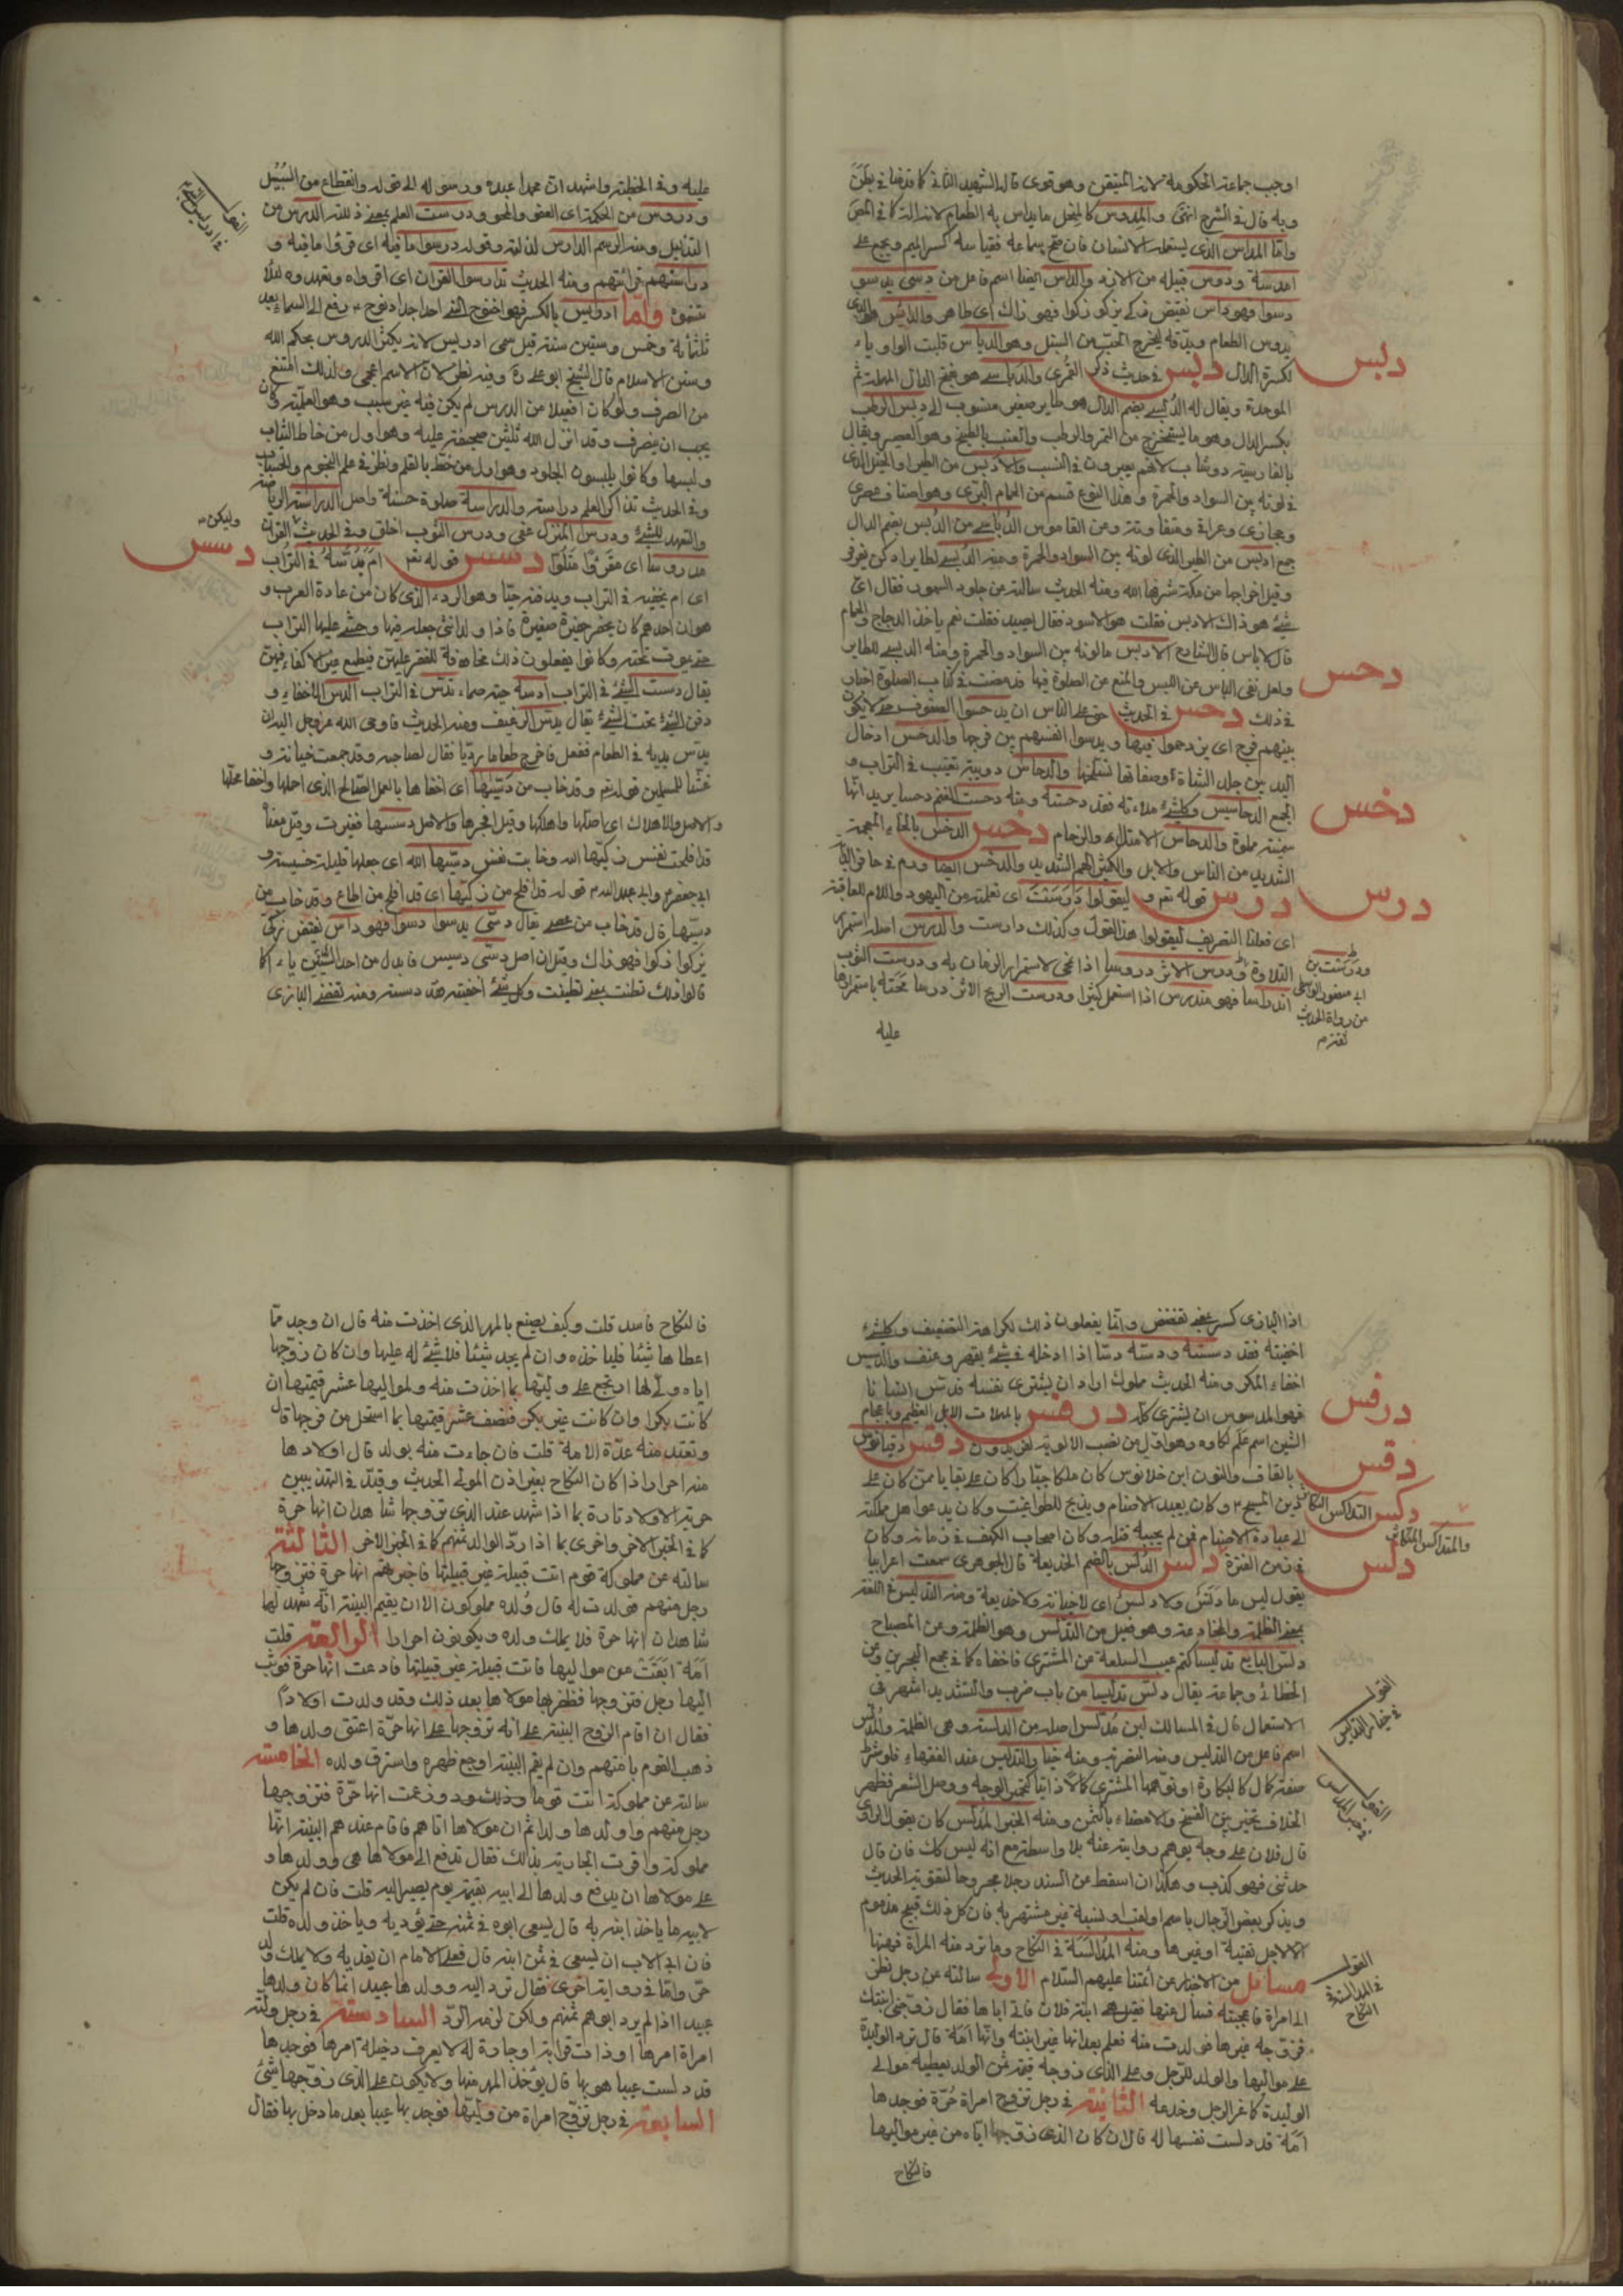 اوجب جماعة الحكومة لانه المتيقن وهو قوى قال الشهيد الثانى كما قدمنا فى بطن
وبه قال فى الشرح انتهى والمدوس كالمنخل ما يداس به الطعام لانه الة كما فى المص
واما المداس الذى يستعمله الانسان فان صح سماعه فقياسه كسر الميم ويجمع على
امدسة ودوس قبيلة من الازد والداس ايضا اسم فاعل من دسى يدسو
دسوا فهو داس نقيض زكى يزكو زكوا فهو زاك اى طاهر والدائس هو الذى
يدوس الطعام ويدقه ليخرج الحب من السنبل وهو الدياس قلبت الواو ياء
لكسرة الدال دبس فى حديث ذكر القمرى والدباسى هو بفتح الدال المهملة ثم
الموحدة ويقال له الدبسى بضم الدال هو طاير صغير منسوب الى دبس الرطب
بكسر الدال وهو ما يستخرج من التمر والرطب والعنب بالطبخ وهو العصير ويقال
بالفارسية دوشاب لانهم يغيرون فى النسب والادبس من الطير والخيل الذى
فى لونه بين السواد والحمرة وهذا النوع قسم من الحمام البرى وهو اصناف مصرى
وحجازى وعراقى ومتقاربة وعن القاموس الدباسى من الدبس بضم الدال
جمع ادبس من الطير الذى لونه بين السواد والحمرة ومنه الدبسى لطاير ادكن يقرقر
وقيل اخراجها من مكة شرفها الله ومنه الحديث سالته عن جلود السمور فقال اى
شئ هو ذاك الادبس فقلت هو الاسود فقال يصيد فقلت نعم ياخذ الدجاج والحمام
قال لا باس قال الشارح الادبس ما لونه بين السواد والحمرة ومنه الدبسى للطاير
ولعل نفى الباس عن اللبس والمنع عن الصلوة فيها وقد مضت فى كتاب الصلوة اخبار
فى ذلك دحس فى الحديث حق على الناس ان يدحسوا الصفوف حتى لا يكون
بينهم فرج اى يزدحموا فيها ويدسوا انفسهم بين فرجها والدحس ادخال
اليد بين جلد الشاة وصفاقها لتسلخها والدحاس دويبة تغيب فى التراب و
الجمع الدحاسيس وكل شئ ملاءته فقد دحسته ومنه دحست للغنم دحسا يريد انها
سمينة مملوة والدحاس الامتلاء والزحام دخس الدخس بالخاء المعجمة
الشديد من الناس والابل والكثير اللحم الشديد والدخس ايضا ورم فى حافر الدابة
درس قوله تعالى وليقولوا دارست اى تعلمت من اليهود واللام للعاقبة
اى فعلنا التصريف ليقولوا هذا القول وكذلك دارست والدرس اصله استمرار
التلاوة ودرس الاثر دروسا اذا انمحى لاستمرار الزمان به ودرست الثوب
اندراسا فهو مندرس اذا استعمل كثيرا ودرست الريح الاثر درسا محته باستمرارها
عليه
دبس
دحس
دخس
درس
ودرست بن
ابى منصور الواسطى
من رواة الحديث
عليه وفى الخطبة واشهد ان محمدا عبده ورسوله الى قوله وانقطاع من السبيل
ودروس من الحكمة اى العفو والمحو ودرست العلم بمعنى ذللته الدرس من
التذليل ومنه الرسم الدارس لذلته وقوله درسوا ما فيه اى قرؤا ما فيه و
دراستهم قرائتهم ومنه الحديث تدارسوا القران اى اقراوه وتعهدوه لئلا
تنسوه واما ادريس بالكسر فهو اخنوخ النبى احد اجداد نوح رفع الى السماء بعد
ثلثماية وخمس وستين سنة قيل سمى ادريس لانه يكثر الدروس بحكم الله
وسنن الاسلام قال الشيخ ابو على ره وفيه نظر لان الاسم اعجمى ولذلك امتنع
من الصرف ولو كان افعيلا من الدرس لم يكن فيه غير سبب وهو العلمية وكان
يجب ان ينصرف وقد انزل الله ثلثين صحيفة عليه وهو اول من خاط الثياب
ولبسها وكانوا يلبسون الجلود وهو اول من خط بالقلم ونظر فى علم النجوم والحساب
وفى الحديث تذاكر العلم دراسة والدراسة صلوة حسنة واصل الدراسة الرياضة
والتعهد للشئ ودرس المنزل عفى ودرس الثوب اخلق وفى الحديث القران
مدروسا اى مقروا متلوا دسس قوله تعالى ام يدسه فى التراب
اى ام يخفيه فى التراب ويدفنه حيا وهو الوءد الذى كان من عادة العرب و
هو ان احدهم كان يحفر حفيرة صغيرة فاذا ولد انثى جعله فيها وحثى عليها التراب
حتى يموت تحته وكانوا يفعلون ذلك مخافة للفقر عليهن فيطمع غير الاكفاء فيهن
يقال دست الشئ فى التراب ادسه حية صماء تدس فى التراب الدس الاخفاء و
دفن الشئ تحت الشئ يقال يدس الرغيف ومنه الحديث فاوحى الله عزوجل اليه ان
يدس يديه فى الطعام ففعل فاخرج طعاما رديا فقال لصاحبه وقد جمعت خيانة و
غشا للمسلمين قوله تعالى وقد خاب من دسيها اى اخفاها بالعمل الصالح الذى احلها واخفا محلها
والاصل والاهلاك اى اضلها واهلكها وقيل افجرها والاصل دسسها فغيرت وقيل معناه
قد افلحت نفس زكيها الله وخابت نفس دسيها الله اى جعلها قليلة خسيسة و
ابى جعفر وابى عبد الله قوله قد افلح من زكيها اى قد افلح من اطاع وقد خاب من
دسيها قال قد خاب من عصى يقال دسى يدسوا دسوا فهو داس نقيض زكى
يزكوا زكوا فهو زاك وقيل ان اصل دسى دسس فابدل من احد السينين ياء كما
قالوا ذلك تظنيت بمعنى تظننت وكل شئ اخفيته فقد دسسته ومنه تقضى البازى
دسس
وليكن
القول
فى ادريس النبى
اذا البازى كسر بمعنى تقضض وانما يفعلون ذلك لكراهة التضعيف وكل شئ
اخفيته فقد دسسته ودسه دسا اذا ادخله فى شئ بقهر وعنف والدسيس
اخفاء المكر ومنه الحديث مملوك اراد ان يشترى نفسه فدس انسانا
فهو المدسوس ان يشترى كله درفس بالمهملات الابل العظيم وباعجام
الشين اسم علم لكاوه وهو اول من نصب الالوية لفريدون دقس دقيانوس
بالقاف والنون ابن خلانوس كان ملكا جبارا كان على بقايا ممن كان على
دين المسيح وكان يعبد الاصنام ويذبح للطواغيت وكان يدعو اهل مملكته
الى عبادة الاصنام فمن لم يجبه قتله وكان اصحاب الكهف فى زمانه وكان
فى زمن الفترة دلس الدلس بالضم الخديعة قال الجوهرى سمعت اعرابيا
يقول ليس ما دلس ولا دلس اى لا خيانة ولا خديعة ومنه التدليس فى اللغة
بمعنى الظلمة والمخادعة وهو فعيل من التدلس وهو الظلمة ومن المصباح
دلس البايع تدليسا كتم عيب السلعة من المشترى فاخفاه كما فى مجمع البحرين وعن
الخطائى وجماعة يقال دلس تدليسا من باب ضرب والتشديد اشهر فى
الاستعمال قال فى المسالك لبن مدلس اصله من الدلسة وهى الظلمة والمدلس
اسم فاعل من التدليس ومنه التصرية ومنه خيار التدليس عند الفقهاء فلو شرط
صفة كمال كالبكارة او توهمها المشترى كمالا ذاتيا كتحمر الوجه ووصل الشعر فظهر
الخلاف تخير بين الفسخ والامضاء بالثمن ومنه الخبر المدلس كان يقول الراوى
قال فلان على وجه يوهم روايته عنه بلا واسطة مع انه ليس كذلك فان قال
حدثنى فهو كذب وهكذا ان اسقط من السند رجلا مجروحا لتقوية الحديث
ويذكر بعض الرجال باسم او لقب او نسبة غير مشتهر به فان كل ذلك قبيح مذموم
الا لاجل تقية او غيرها ومنه المدالسة فى النكاح وما ترد منه المراة فهنها
مسائل من الاخبار عن ائمتنا عليهم السلام الاولى سالته عن رجل نظر
الى امراة فاعجبته فسال عنها فقيل هى ابنة فلان فاتى اباها فقال زوجنى ابنتك
فزوجه غيرها فولدت منه فعلم بعد انها غير ابنته وانها امة قال ترد الوليدة
على مواليها والولد للرجل وعلى الذى زوجه قيمة ثمن الولد يعطيه موالى
الوليدة كما غر الرجل وخدعه الثانية فى رجل تزوج امراة حرة فوجدها
امة قد دلست نفسها له قال ان كان الذى زوجها اياه من غير مواليها
فالنكاح
درفس
دقس
دكس التداكس التكاثر
والمتداكس المتكاثر
دلس
القول
فى خيار التدليس
القول
فى خبر المدلس
القول
فى المدالسة فى
النكاح
فالنكاح فاسد قلت وكيف يصنع بالمهر الذى اخذت منه قال ان وجد مما
اعطاها شيئا فلياخذه وان لم يجد شيئا فلا شئ له عليها وان كان زوجها
اياه ولى لها ارتجع على وليها بما اخذت منه ولمواليها عشر قيمتها ان
كانت بكرا وان كانت غير بكر فنصف عشر قيمتها بما استحل من فرجها قال
وتعتد منه عدة الامة قلت فان جاءت منه بولد قال اولادها
منه احرار اذا كان النكاح بغير اذن المولى الحديث وقيد فى التهذيبين
حرية الاولاد تارة بما اذا شهد عند الذى تزوجها شاهدان انها حرة
كما فى الخبر الاخر واخرى بما اذا رد الوالد ثمنهم كما فى الخبر الاخر الثالثة
سالته عن مملوكة قوم اتت قبيلة غير قبيلتها فاخبرتهم انها حرة فتزوجها
رجل منهم فولدت له قال ولده مملوكون الا ان يقيم البينة انه شهد لها
شاهدان انها حرة فلا يملك ولده ويكونون احرارا الرابعة قلت
امة ابقت من مواليها فاتت قبيلة غير قبيلتها فادعت انها حرة فوثب
اليها رجل فتزوجها فظفر بها مولاها بعد ذلك وقد ولدت اولادا
فقال ان اقام الزوج البينة على انه تزوجها على انها حرة اعتق ولدها و
ذهب القوم بامتهم وان لم يقم البينة اوجع ظهره واسترق ولده الخامسة
سالته عن مملوكة اتت قوما وزعمت انها حرة فتزوجها
رجل منهم واولدها ولدا ثم ان مولاها اتاهم فاقام عندهم البينة انها
مملوكة واقرت الجارية بذلك فقال تدفع الى مولاها هى وولدها و
على مولاها ان يدفع ولدها الى ابيه بقيمته يوم يصير اليه قلت فان لم يكن
لابيه ما ياخذ ابنه به قال يسعى ابوه فى ثمنه حتى يوديه وياخذ ولده قلت
فان ابى الاب ان يسعى فى ثمن ابنه قال فعلى الامام ان يفديه ولا يملك ولد
حر واما فى رواية اخرى فقال ترد اليه وولدها عبيد انما كان ولدها
عبيدا اذا لم يرد ابوهم ثمنهم ولكن لزمه الرد السادسة فى رجل ولته
امراة امرها او ذات قرابة او جارة له لا يعرف دخيلة امرها فوجدها
قد دلست عيبا هو بها قال يؤخذ المهر منها ولا يكون على الذى زوجها شئ
السابعة فى رجل تزوج امراة من وليها فوجد بها عيبا بعد ما دخل بها فقال